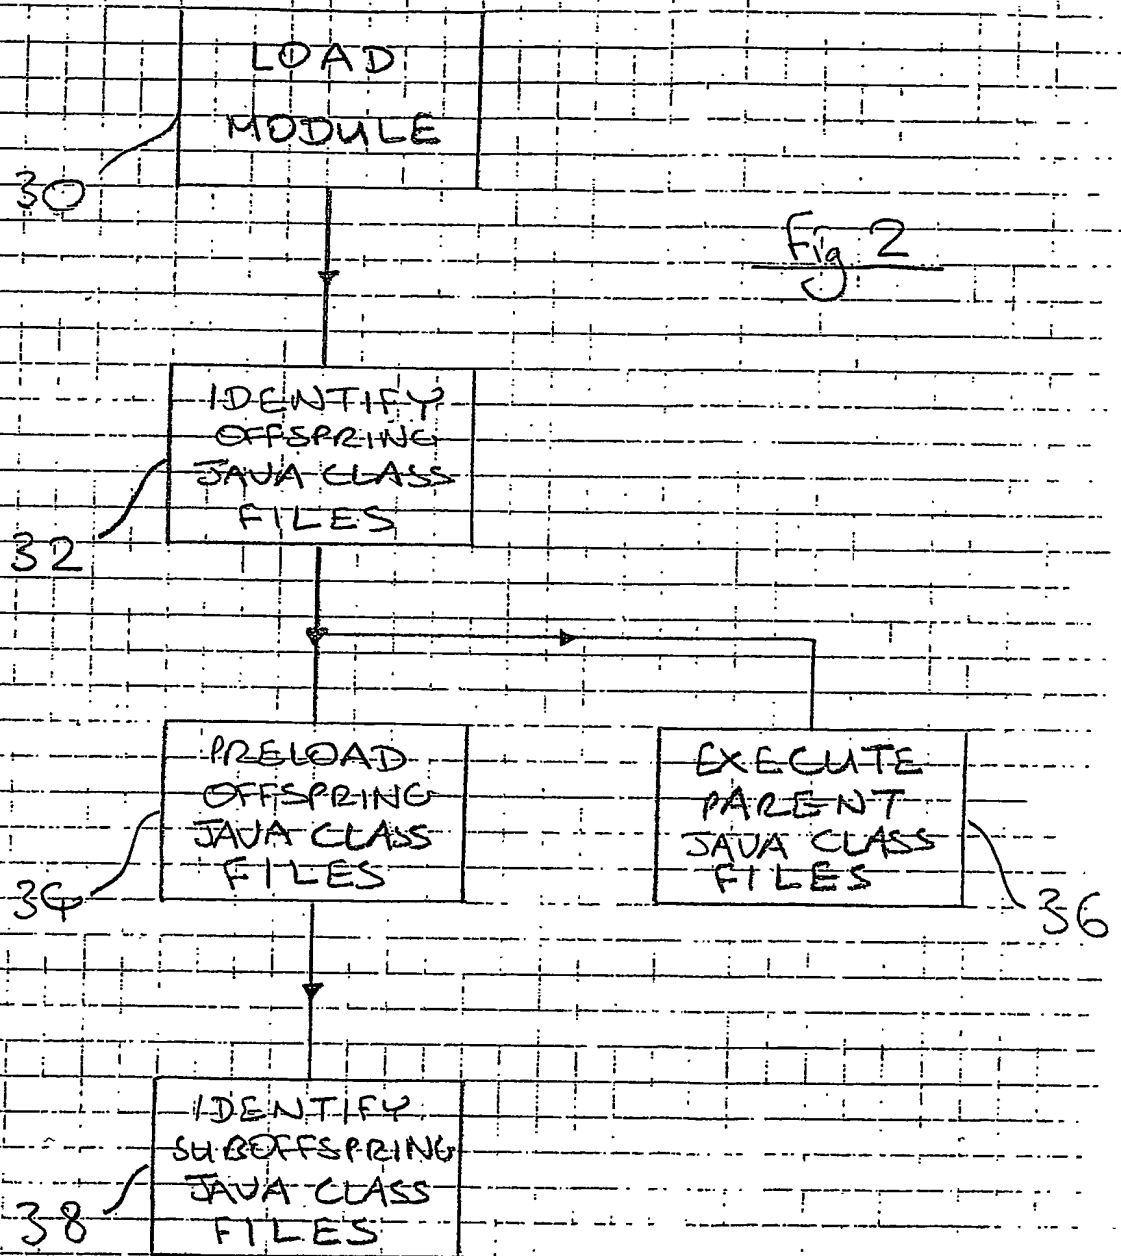 LOAD
MODULE
30
Fig 2
IDENTIFY
OFFSPRING
JAVA CLASS
FILES
32
PRELOAD
OFFSPRING
JAVA CLASS
FILES
34
EXECUTE
PARENT
JAVA CLASS
FILES
36
IDENTIFY
SUBOFFSPRING
JAVA CLASS
FILES
38